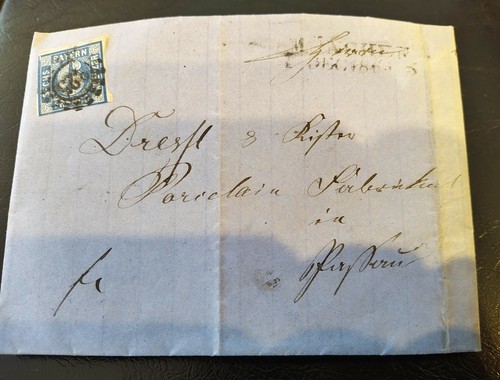 BAYERN
SECHS
Dressl & Kister
Porcelain Fabrikant
in
Passau
fr